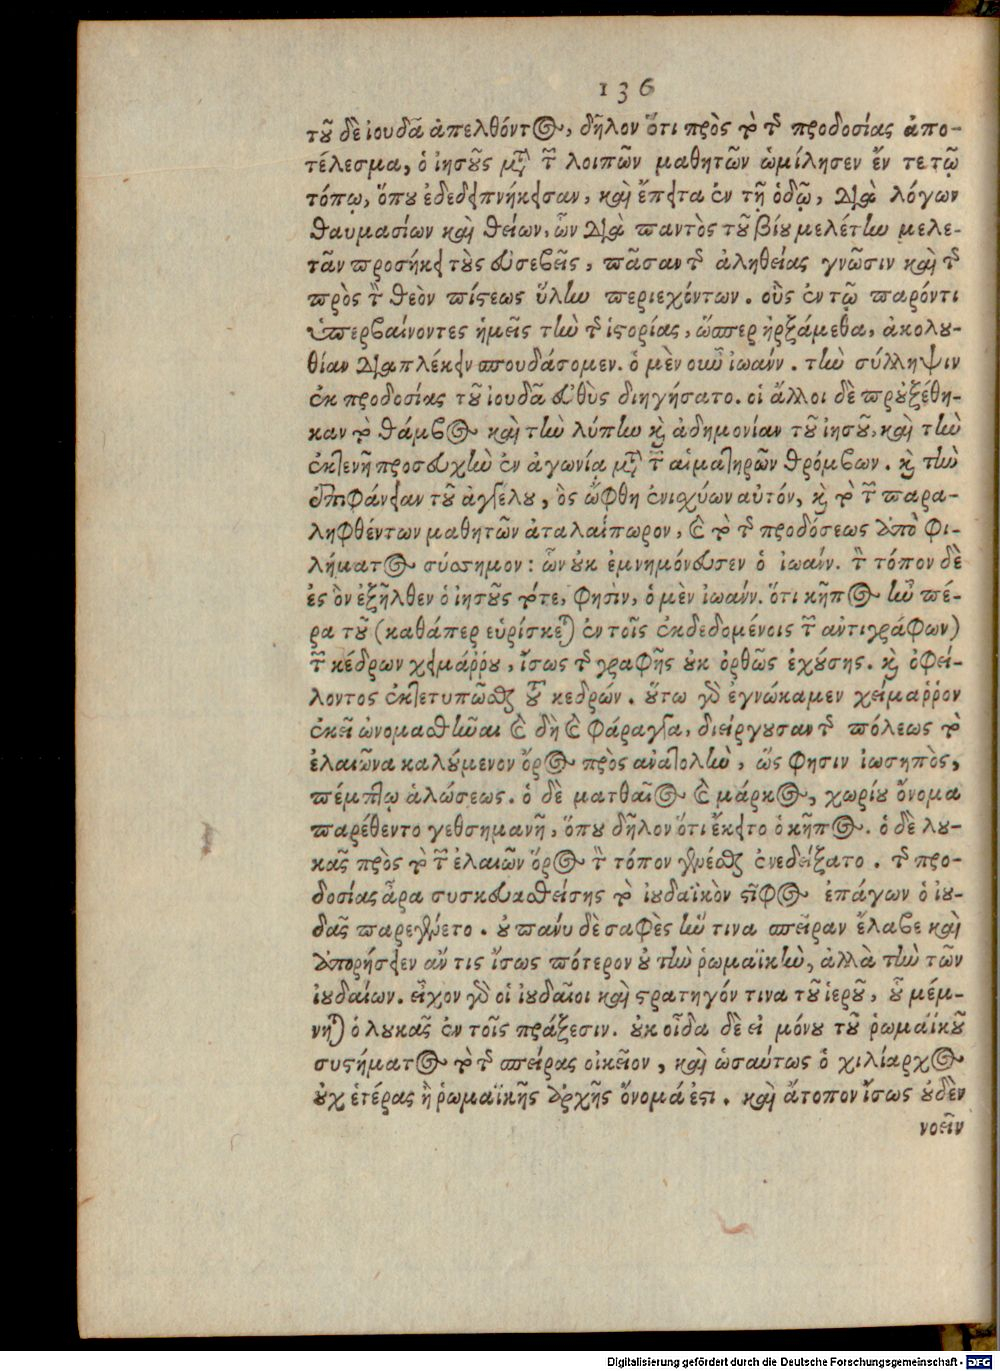 136
τοῦ δὲ ἰουδᾶ ἀπελθόντος, δῆλον ὅτι πρὸς τὸ τῆς προδοσίας ἀπο-
τέλεσμα, ὁ ἰησοῦς μετὰ τῶν λοιπῶν μαθητῶν ὡμίλησεν ἔν τε τῷ
τόπῳ, ὅπου ἐδεδειπνήκεισαν, καὶ ἔπειτα ἐν τῇ ὁδῷ, διὰ λόγων
θαυμασίων καὶ θείων, ὧν διὰ παντὸς τοῦ βίου μελέτην μελε-
τᾶν προσήκει τοὺς εὐσεβεῖς, πᾶσαν τῆς ἀληθείας γνῶσιν καὶ τῆς
πρὸς τὸν θεὸν πίστεως ὕλην περιεχόντων. οὓς ἐν τῷ παρόντι
ὑπερβαίνοντες ἡμεῖς τὴν τῆς ἱστορίας, ὥσπερ ἠρξάμεθα, ἀκολου-
θίαν διαπλέκειν σπουδάσομεν. ὁ μὲν οὖν ἰωάνν. τὴν σύλληψιν
ἐκ προδοσίας τοῦ ἰουδᾶ εὐθὺς διηγήσατο. οἱ ἄλλοι δὲ προὐξέθη-
καν τὸ θάμβος καὶ τὴν λύπην καὶ ἀδημονίαν τοῦ ἰησοῦ, καὶ τὴν
ἐκτενῆ προσευχὴν ἐν ἀγωνίᾳ μετὰ τῶν αἱματηρῶν θρόμβων. καὶ τὴν
ἐπιφάνειαν τοῦ ἀγγέλου, ὃς ὤφθη ἐνισχύων αὐτόν, καὶ τὸ τῶν παρα-
ληφθέντων μαθητῶν ἀταλαίπωρον, καὶ τὸ τῆς προδόσεως ἀπὸ φι-
λήματος σύσσημον: ὧν οὐκ ἐμνημόνευσεν ὁ ἰωάνν. τὸν τόπον δὲ
ἐς ὃν ἐξῆλθεν ὁ ἰησοῦς τότε, φησὶν, ὁ μὲν ἰωάνν. ὅτι κῆπος ἦν πέ-
ρα τοῦ (καθάπερ εὑρίσκεται ἐν τοῖς ἐκδεδομένοις τῶν ἀντιγράφων)
τῶν κέδρων χειμάῤῥου, ἴσως τῆς γραφῆς οὐκ ὀρθῶς ἐχούσης. καὶ ὀφεί-
λοντος ἐκτετυπῶσθαι τοῦ κεδρών. οὕτω γὰρ ἐγνώκαμεν χείμαῤῥον
ἐκεῖ ὠνομασθῆναι καὶ δὴ καὶ φάραγγα, διείργουσαν τῆς πόλεως τὸ
ἐλαιῶνα καλούμενον ὄρος πρὸς ἀνατολὴν, ὥς φησιν ἰώσηπος,
πέμπτῳ ἁλώσεως. ὁ δὲ ματθαῖος καὶ μάρκος, χωρίου ὄνομα
παρέθεντο γεθσημανῆ, ὅπου δῆλον ὅτι ἔκειτο ὁ κῆπος. ὁ δὲ λου-
κᾶς πρὸς τὸ τῶν ἐλαιῶν ὄρος τὸν τόπον γενέσθαι ἐνεδείξατο. τῆς προ-
δοσίας ἄρα συσκευασθείσης τὸ ἰουδαϊκὸν στῖφος ἐπάγων ὁ ἰού-
δας παρεγένετο. οὐ πάνυ δὲ σαφὲς ἦν τινα σπεῖραν ἔλαβε καὶ
ἀπορήσειεν ἄν τις ἴσως πότερον οὐ τὴν ῥωμαϊκὴν, ἀλλὰ τὴν τῶν
ἰουδαίων. εἶχον γὰρ οἱ ἰουδαῖοι καὶ στρατηγόν τινα τοῦ ἱεροῦ, οὗ μέμ-
νηται ὁ λουκᾶς ἐν τοῖς πράξεσιν. οὐκ οἶδα δὲ εἰ μόνου τοῦ ῥωμαϊκοῦ
συστήματος τὸ τῆς σπείρας οἰκεῖον, καὶ ὡσαύτως ὁ χιλίαρχος
οὐχ ἑτέρας ἢ ῥωμαϊκῆς ἀρχῆς ὄνομά ἐστι. καὶ ἄτοπον ἴσως οὐδὲν
νοεῖν
Digitalisierung gefördert durch die Deutsche Forschungsgemeinschaft - DFG